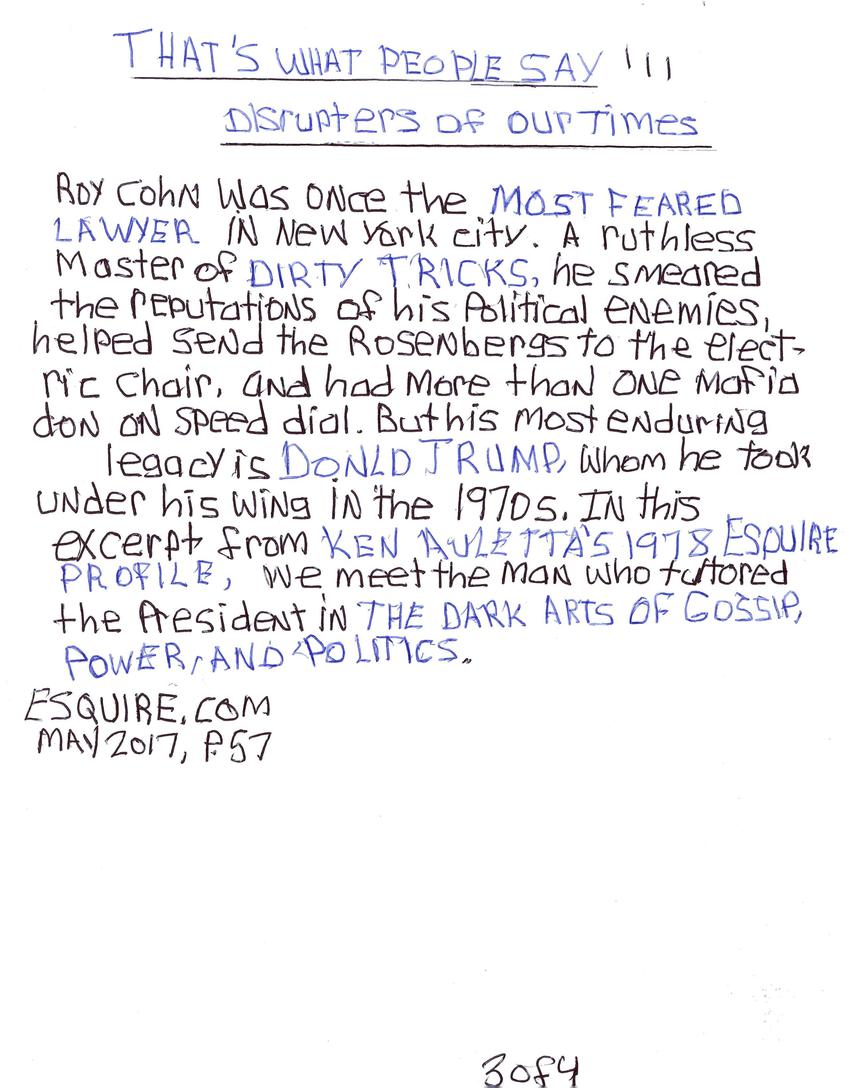 THAT'S WHAT PEOPLE SAY !!!
DISrupters of our TIMES
ROY COHN Was ONCE the MOST FEARED
LAWYER IN New York city. A ruthless
Master of DIRTY TRICKS, he smeared
the reputations of his Political eNeMies,
helped SeNd the Rosenbergs to the elect-
ric Chair, and had More than ONE Mafia
don ON SPeed dial. But his Most enduriNg
legacy is DONLD TRUMP, Whom he took
under his wing in the 1970s. IN this
excerpt from KEN AULETTA'S 1978 ESQUIRE
PROFILE, We meet the MaN who tutored
the President in THE DARK ARTS OF GOSSIP,
POWER, AND POLITICS.
ESQUIRE.COM
MAY 2017, P57
3 of 4